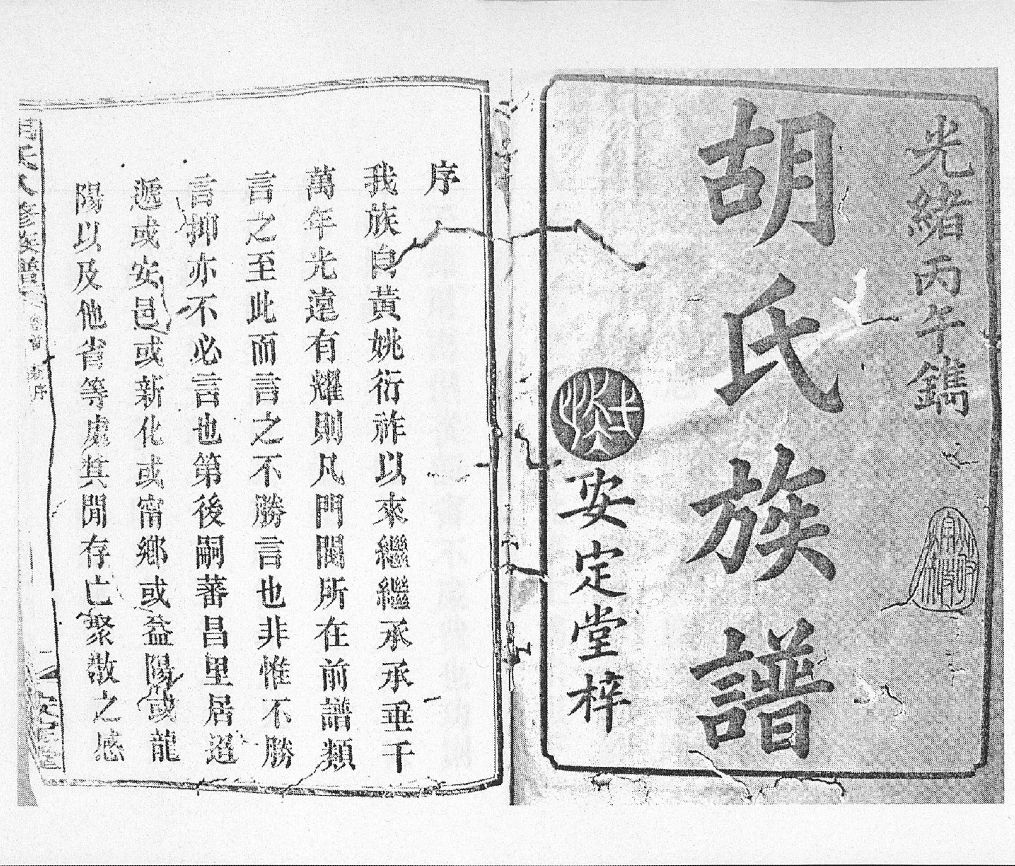 光緒丙午鐫
胡氏族譜
安定堂梓
序
我族自黃姚衍祚以來繼繼承承垂千
萬年光遠有耀則凡門閥所在前譜類
言之至此而言之不勝言也非惟不勝
言抑亦不必言也第後嗣蕃昌里居迢
遞或安邑或新化或甯鄉或益陽或龍
陽以及他省等處其閒存亡聚散之感
氏八修族譜
序